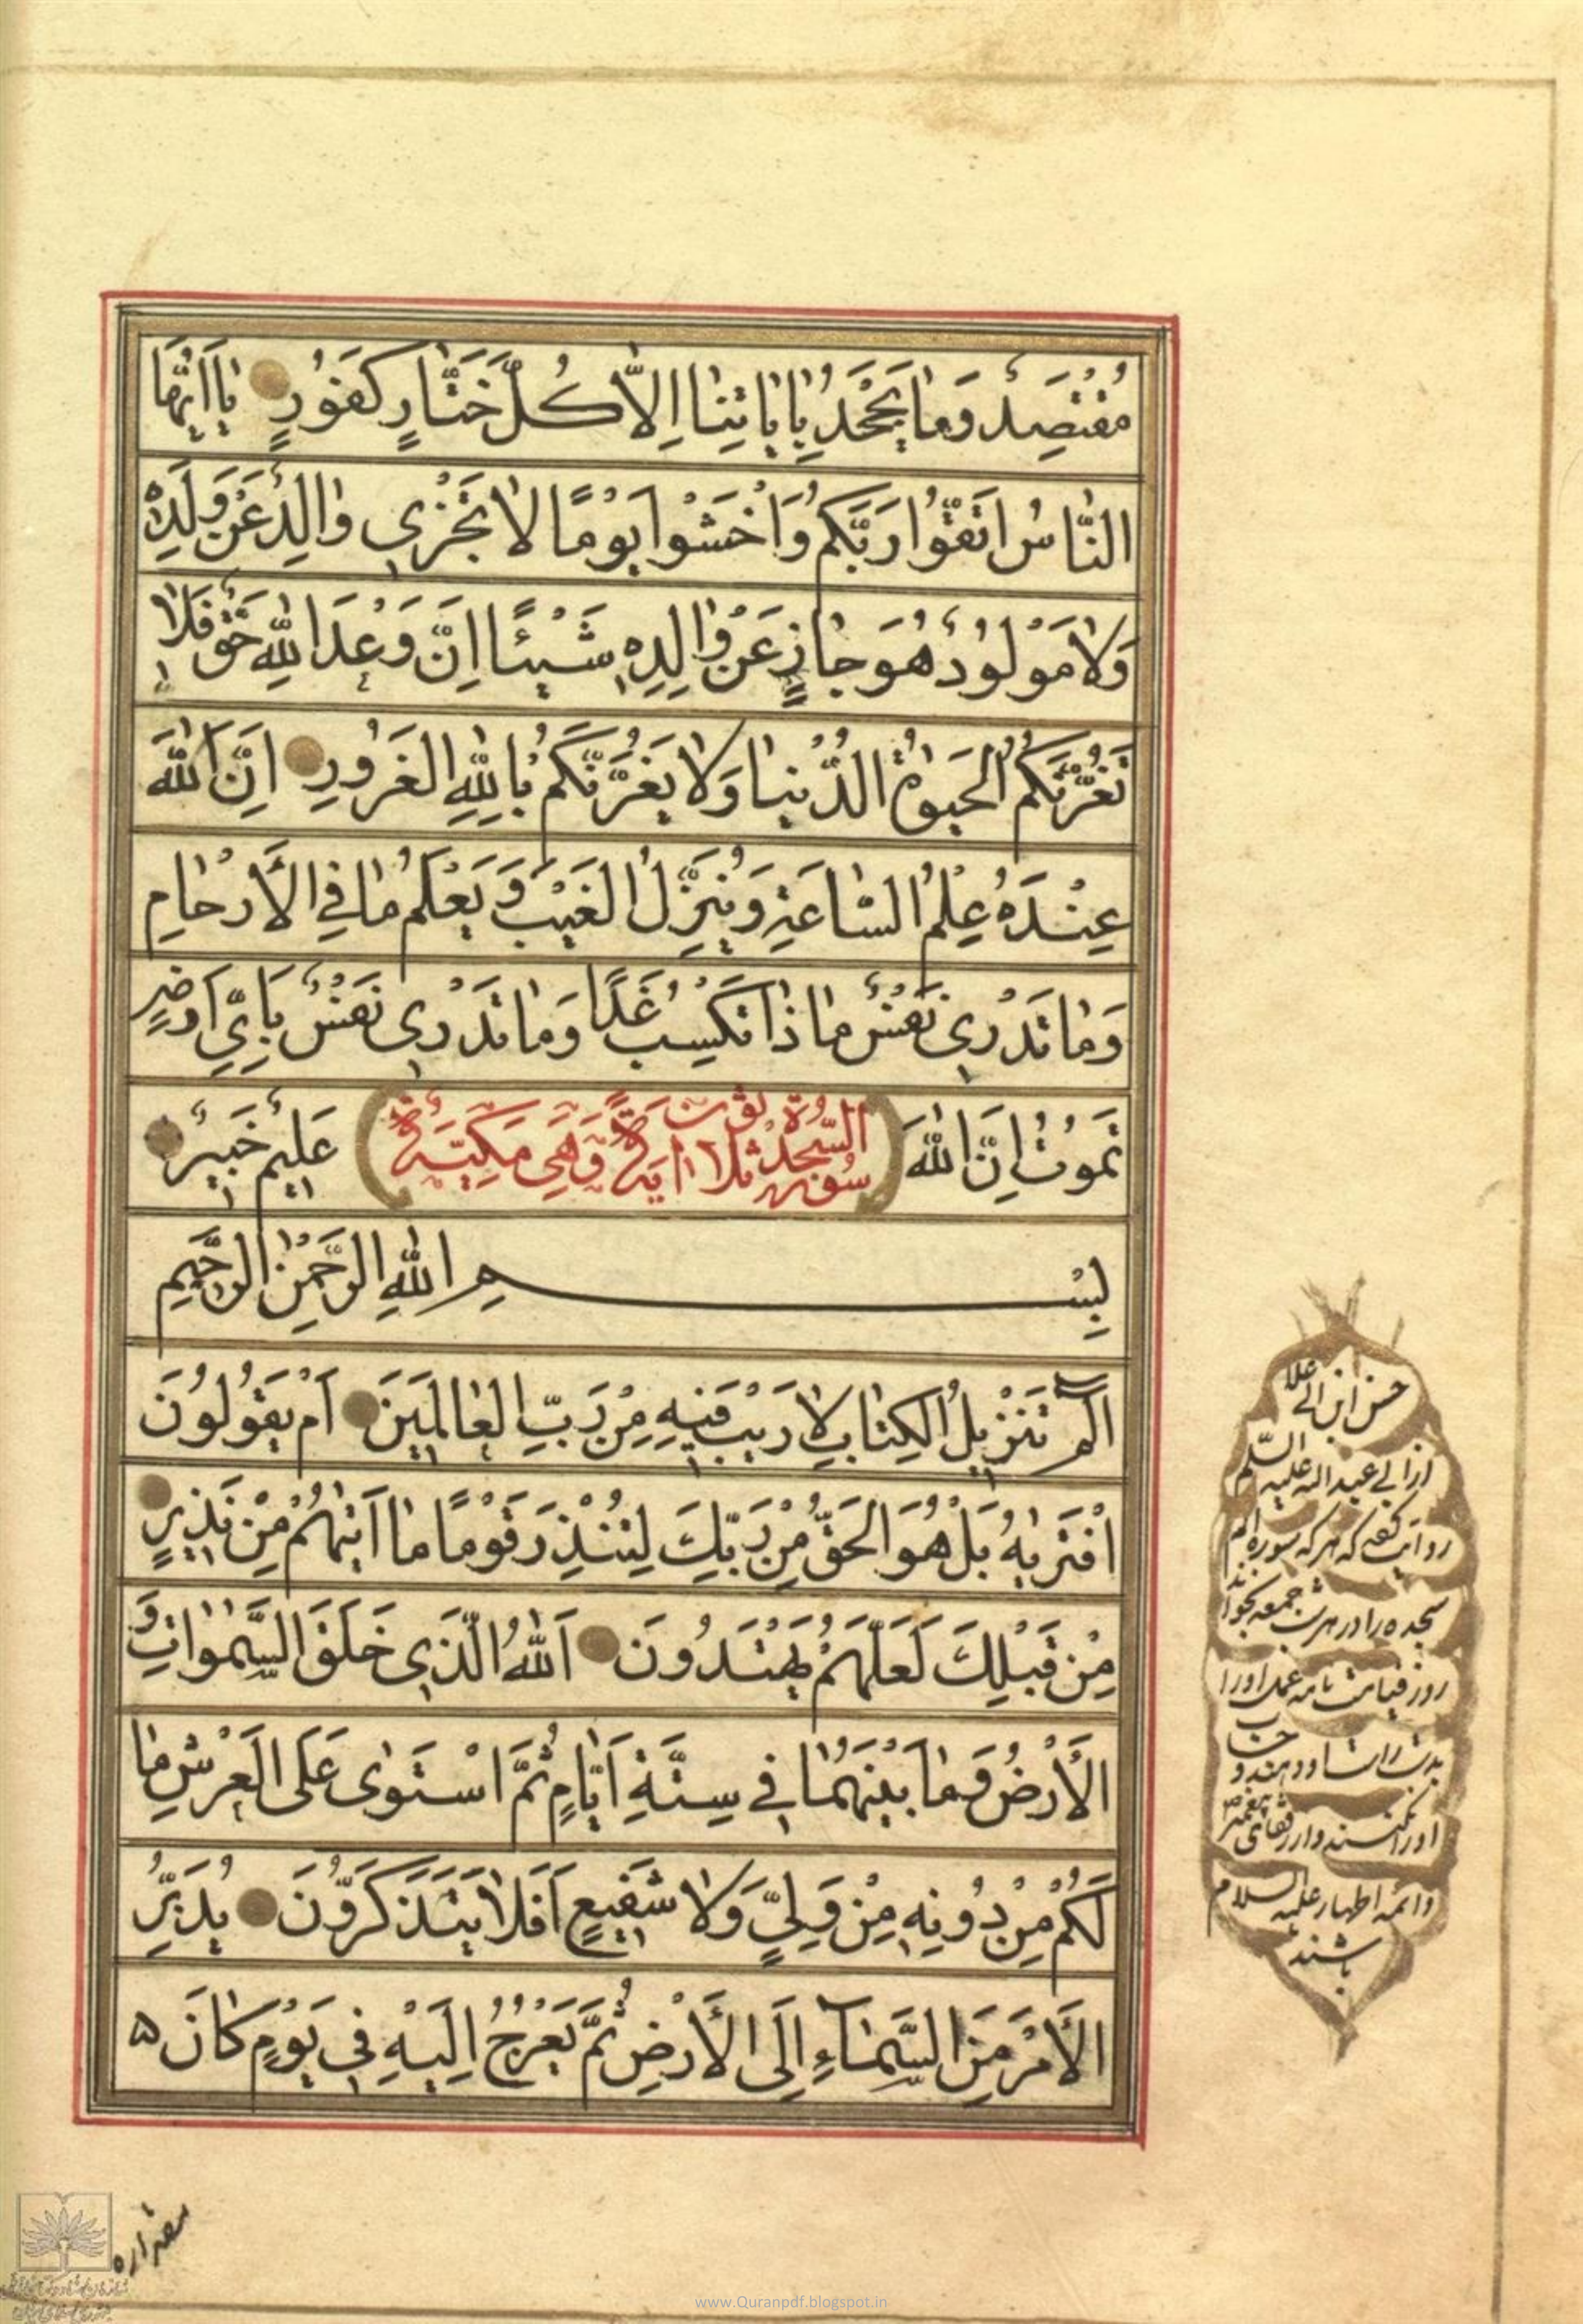 مُقْتَصِدٌ وَمٰا يَجْحَدُ بِاٰيٰاتِنٰا اِلاّٰ كُلُّ خَتّٰارٍ كَفُورٍ يٰا اَيُّهَا
النّٰاسُ اتَّقُوا رَبَّكُمْ وَاخْشَوْا يَوْمًا لاٰ يَجْزٖي وٰالِدٌ عَنْ وَلَدِهٖ
وَلاٰ مَوْلُودٌ هُوَ جٰازٍ عَنْ وٰالِدِهٖ شَيْئًا اِنَّ وَعْدَ اللّٰهِ حَقٌّ فَلاٰ
تَغُرَّنَّكُمُ الْحَيٰوةُ الدُّنْيٰا وَلاٰ يَغُرَّنَّكُمْ بِاللّٰهِ الْغَرُورِ اِنَّ اللّٰهَ
عِنْدَهُ عِلْمُ السّٰاعَةِ وَيُنَزِّلُ الْغَيْبَ وَيَعْلَمُ مٰا فِي الْأَرْحٰامِ
وَمٰا تَدْرٖي نَفْسٌ مٰا ذٰا تَكْسِبُ غَدًا وَمٰا تَدْرٖي نَفْسٌ بِاَيِّ اَرْضٍ
تَمُوتُ اِنَّ اللّٰهَ عَلٖيمٌ خَبٖيرٌ
سُورَةُ السَّجْدَةِ ثَلاٰثُونَ اٰيَةً وَهِيَ مَكِّيَّةٌ
بِسْمِ اللّٰهِ الرَّحْمٰنِ الرَّحٖيمِ
الٓمٓ تَنْزٖيلُ الْكِتٰابِ لاٰ رَيْبَ فٖيهِ مِنْ رَبِّ الْعٰالَمٖينَ اَمْ يَقُولُونَ
افْتَرٰيهُ بَلْ هُوَ الْحَقُّ مِنْ رَبِّكَ لِتُنْذِرَ قَوْمًا مٰا اَتٰيهُمْ مِنْ نَذٖيرٍ
مِنْ قَبْلِكَ لَعَلَّهُمْ يَهْتَدُونَ اَللّٰهُ الَّذٖي خَلَقَ السَّمٰوٰاتِ وَ
الْأَرْضَ وَمٰا بَيْنَهُمٰا فٖي سِتَّةِ اَيّٰامٍ ثُمَّ اسْتَوٰى عَلَى الْعَرْشِ مٰا
لَكُمْ مِنْ دُونِهٖ مِنْ وَلِيٍّ وَلاٰ شَفٖيعٍ اَفَلاٰ يَتَذَكَّرُونَ يُدَبِّرُ
الْأَمْرَ مِنَ السَّمٰاءِ اِلَى الْأَرْضِ ثُمَّ يَعْرُجُ اِلَيْهِ فٖي يَوْمٍ كٰانَ
حسن ابن ابي علا
از ابي عبد الله عليه السلم
روايت كرده كه هر كه سوره الم
سجده را در هر شب جمعه بخواند
روز قيامت نامه عمل او را
بدست راست او دهند و حساب
او را نكنند و از رفقاى پيغمبر ص
و ائمه اطهار عليه السلام
باشند
مقداره
www.Quranpdf.blogspot.in